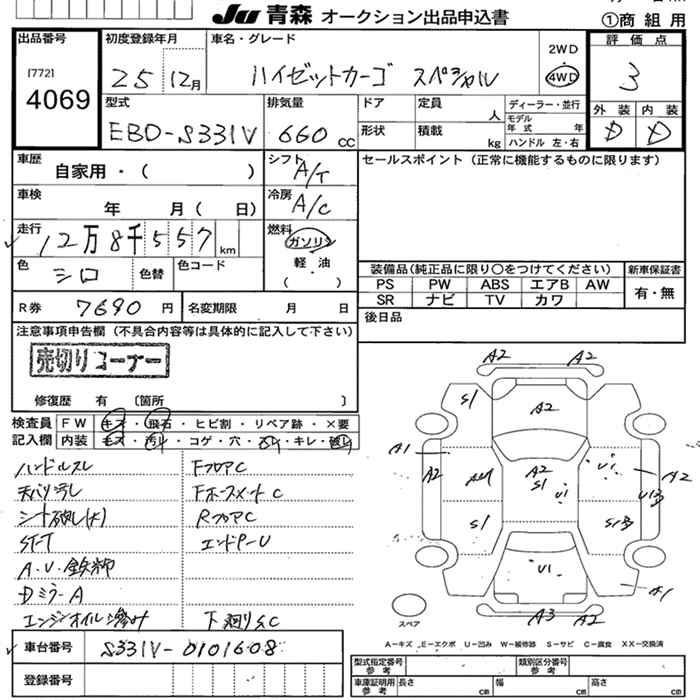 JU 青森 オークション出品申込書
①商 組 用
出品番号
[772]
4069
初度登録年月
25 12月
車名・グレード
ハイゼットカーゴ スペシャル
2WD
4WD
評価点
3
外装 内装
D D
型式
EBD-S331V
排気量
660 CC
ドア
定員
人
形状
積載
kg
ディーラー・並行
モデル
年式 年
ハンドル 左・右
車歴
自家用・( )
シフト
A/T
セールスポイント(正常に機能するものに限ります)
車検
年 月( 日)
冷房
A/C
走行
12万8千557 km
燃料
ガソリン
軽・油
( )
色
シロ
色替
色コード
R券 7690 円
名変期限 月 日
装備品(純正品に限り〇をつけてください)
新車保証書
PS PW ABS エアB AW
SR ナビ TV カワ
有・無
後日品
注意事項申告欄(不具合内容等は具体的に記入して下さい)
売切りコーナー
修復歴 有 〔箇所 〕
検査員
記入欄
FW キズ・飛石・ヒビ割・リペア跡・×要
内装
コゲ・穴
キレ
ハンドルスレ
FフロアC
FホースメントC
シート破レ(大)
RフロアC
ST-T
エンドP-U
DミラーA
エンジンオイル滲み
下廻りSC
A2 A2
S1
A2
A1
A2
A2
S1
U1
U1
A2
S1
U1
A1
A3 A2
スペア
A=キズ E=エクボ U=凹み W=補修跡 S=サビ C=腐食 XX=交換済
車台番号
S331V-0101608
登録番号
型式指定番号
参考
類別区分番号
参考
車庫証明用
参考
長さ cm
幅 cm
高さ cm